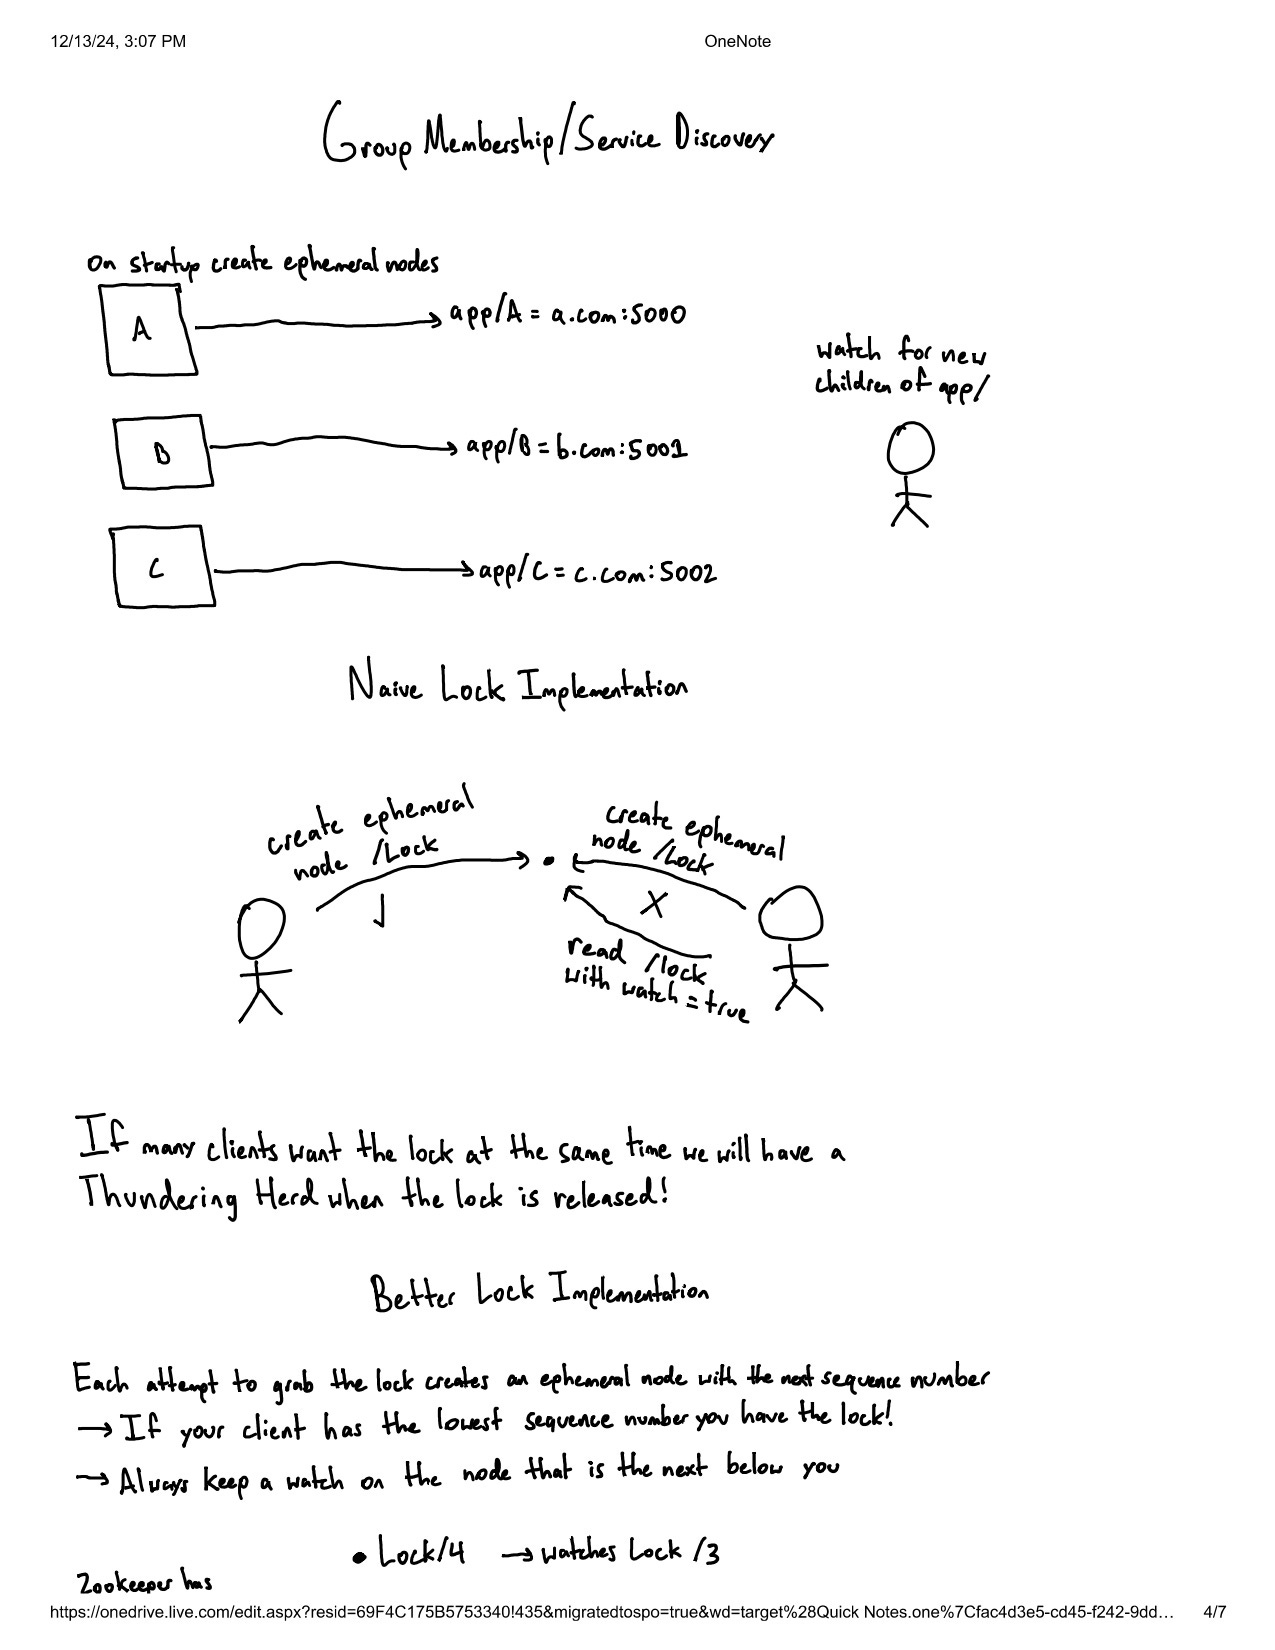 12/13/24, 3:07 PM OneNote
Group Membership/Service Discovery
On startup create ephemeral nodes
A
app/A = a.com:5000
watch for new
children of app/
B
app/B = b.com:5001
C
app/C = c.com:5002
Naive Lock Implementation
create ephemeral
node /Lock
create ephemeral
node /Lock
X
read /lock
with watch = true
If many clients want the lock at the same time we will have a
Thundering Herd when the lock is released!
Better Lock Implementation
Each attempt to grab the lock creates an ephemeral node with the next sequence number
→ If your client has the lowest sequence number you have the lock!
→ Always keep a watch on the node that is the next below you
• Lock/4 → watches Lock/3
Zookeeper has
https://onedrive.live.com/edit.aspx?resid=69F4C175B5753340!435&migratedtospo=true&wd=target%28Quick Notes.one%7Cfac4d3e5-cd45-f242-9dd… 4/7